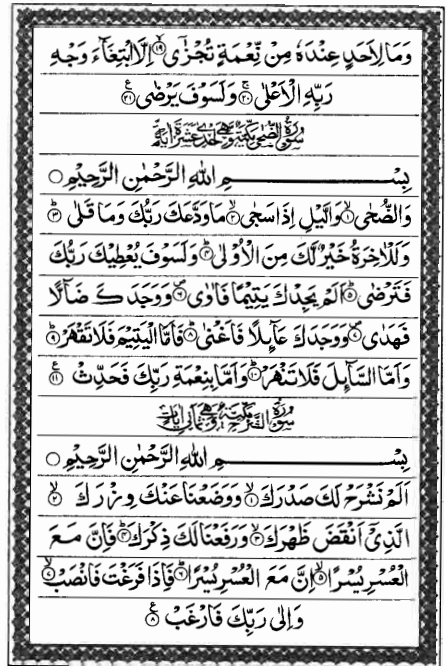 وَمَا لِاَحَدٍ عِنْدَهٗ مِنْ نِّعْمَةٍ تُجْزٰۤى ﴿۱۹﴾ اِلَّا ابْتِغَآءَ وَجْهِ
رَبِّهِ الْاَعْلٰى ﴿۲۰﴾ وَلَسَوْفَ يَرْضٰى ﴿۲۱﴾
سُوْرَةُ الضُّحٰى مَكِّيَّةٌ وَّهِيَ اِحْدٰى عَشْرَةَ اٰيَةً
بِسْمِ اللهِ الرَّحْمٰنِ الرَّحِيْمِ ○
وَالضُّحٰى ﴿۱﴾ وَالَّيْلِ اِذَا سَجٰى ﴿۲﴾ مَا وَدَّعَكَ رَبُّكَ وَمَا قَلٰى ﴿۳﴾
وَلَلْاٰخِرَةُ خَيْرٌ لَّكَ مِنَ الْاُوْلٰى ﴿۴﴾ وَلَسَوْفَ يُعْطِيْكَ رَبُّكَ
فَتَرْضٰى ﴿۵﴾ اَلَمْ يَجِدْكَ يَتِيْمًا فَاٰوٰى ﴿۶﴾ وَوَجَدَكَ ضَآلًّا
فَهَدٰى ﴿۷﴾ وَوَجَدَكَ عَآئِلًا فَاَغْنٰى ﴿۸﴾ فَاَمَّا الْيَتِيْمَ فَلَا تَقْهَرْ ﴿۹﴾
وَاَمَّا السَّآئِلَ فَلَا تَنْهَرْ ﴿۱۰﴾ وَاَمَّا بِنِعْمَةِ رَبِّكَ فَحَدِّثْ ﴿۱۱﴾
سُوْرَةُ اَلَمْ نَشْرَحْ مَكِّيَّةٌ وَّهِيَ ثَمَانِيْ اٰيَاتٍ
بِسْمِ اللهِ الرَّحْمٰنِ الرَّحِيْمِ ○
اَلَمْ نَشْرَحْ لَكَ صَدْرَكَ ﴿۱﴾ وَوَضَعْنَا عَنْكَ وِزْرَكَ ﴿۲﴾
الَّذِيْۤ اَنْقَضَ ظَهْرَكَ ﴿۳﴾ وَرَفَعْنَا لَكَ ذِكْرَكَ ﴿۴﴾ فَاِنَّ مَعَ
الْعُسْرِ يُسْرًا ﴿۵﴾ اِنَّ مَعَ الْعُسْرِ يُسْرًا ﴿۶﴾ فَاِذَا فَرَغْتَ فَانْصَبْ ﴿۷﴾
وَاِلٰى رَبِّكَ فَارْغَبْ ﴿۸﴾